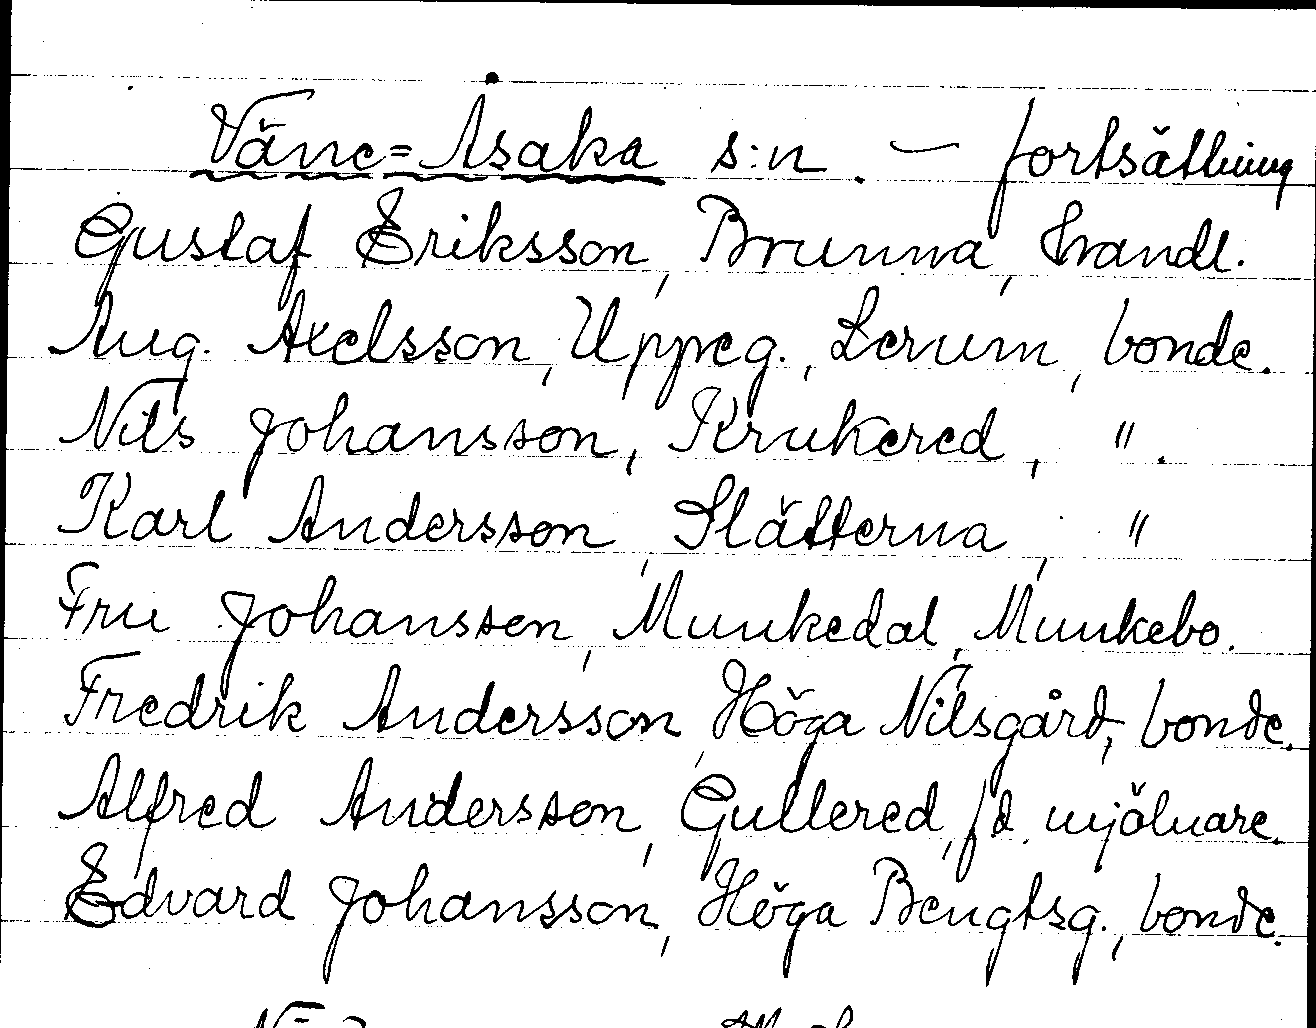 Väne=Åsaka s:n. — fortsättning
Gustaf Eriksson, Brunna, Handl.
Aug. Axelsson, Uppeg., Lerum, bonde.
Nils Johansson, Krukered, ".
Karl Andersson, Slätterna, "
Fru Johansson, Munkedal, Munkebo.
Fredrik Andersson, Höga Nilsgård, bonde.
Alfred Andersson, Gullered, fd. mjölnare.
Edvard Johansson, Höga Bengtsg., bonde.